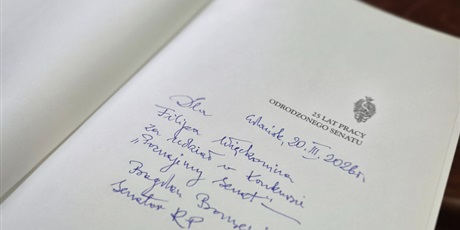 25 LAT PRACY
ODRODZONEGO SENATU
Gdańsk, 20. III. 2026 r.
Dla
Filipa
za udział w Konkursie
"Poznajemy Senat" –
Bogdan
Senator RP